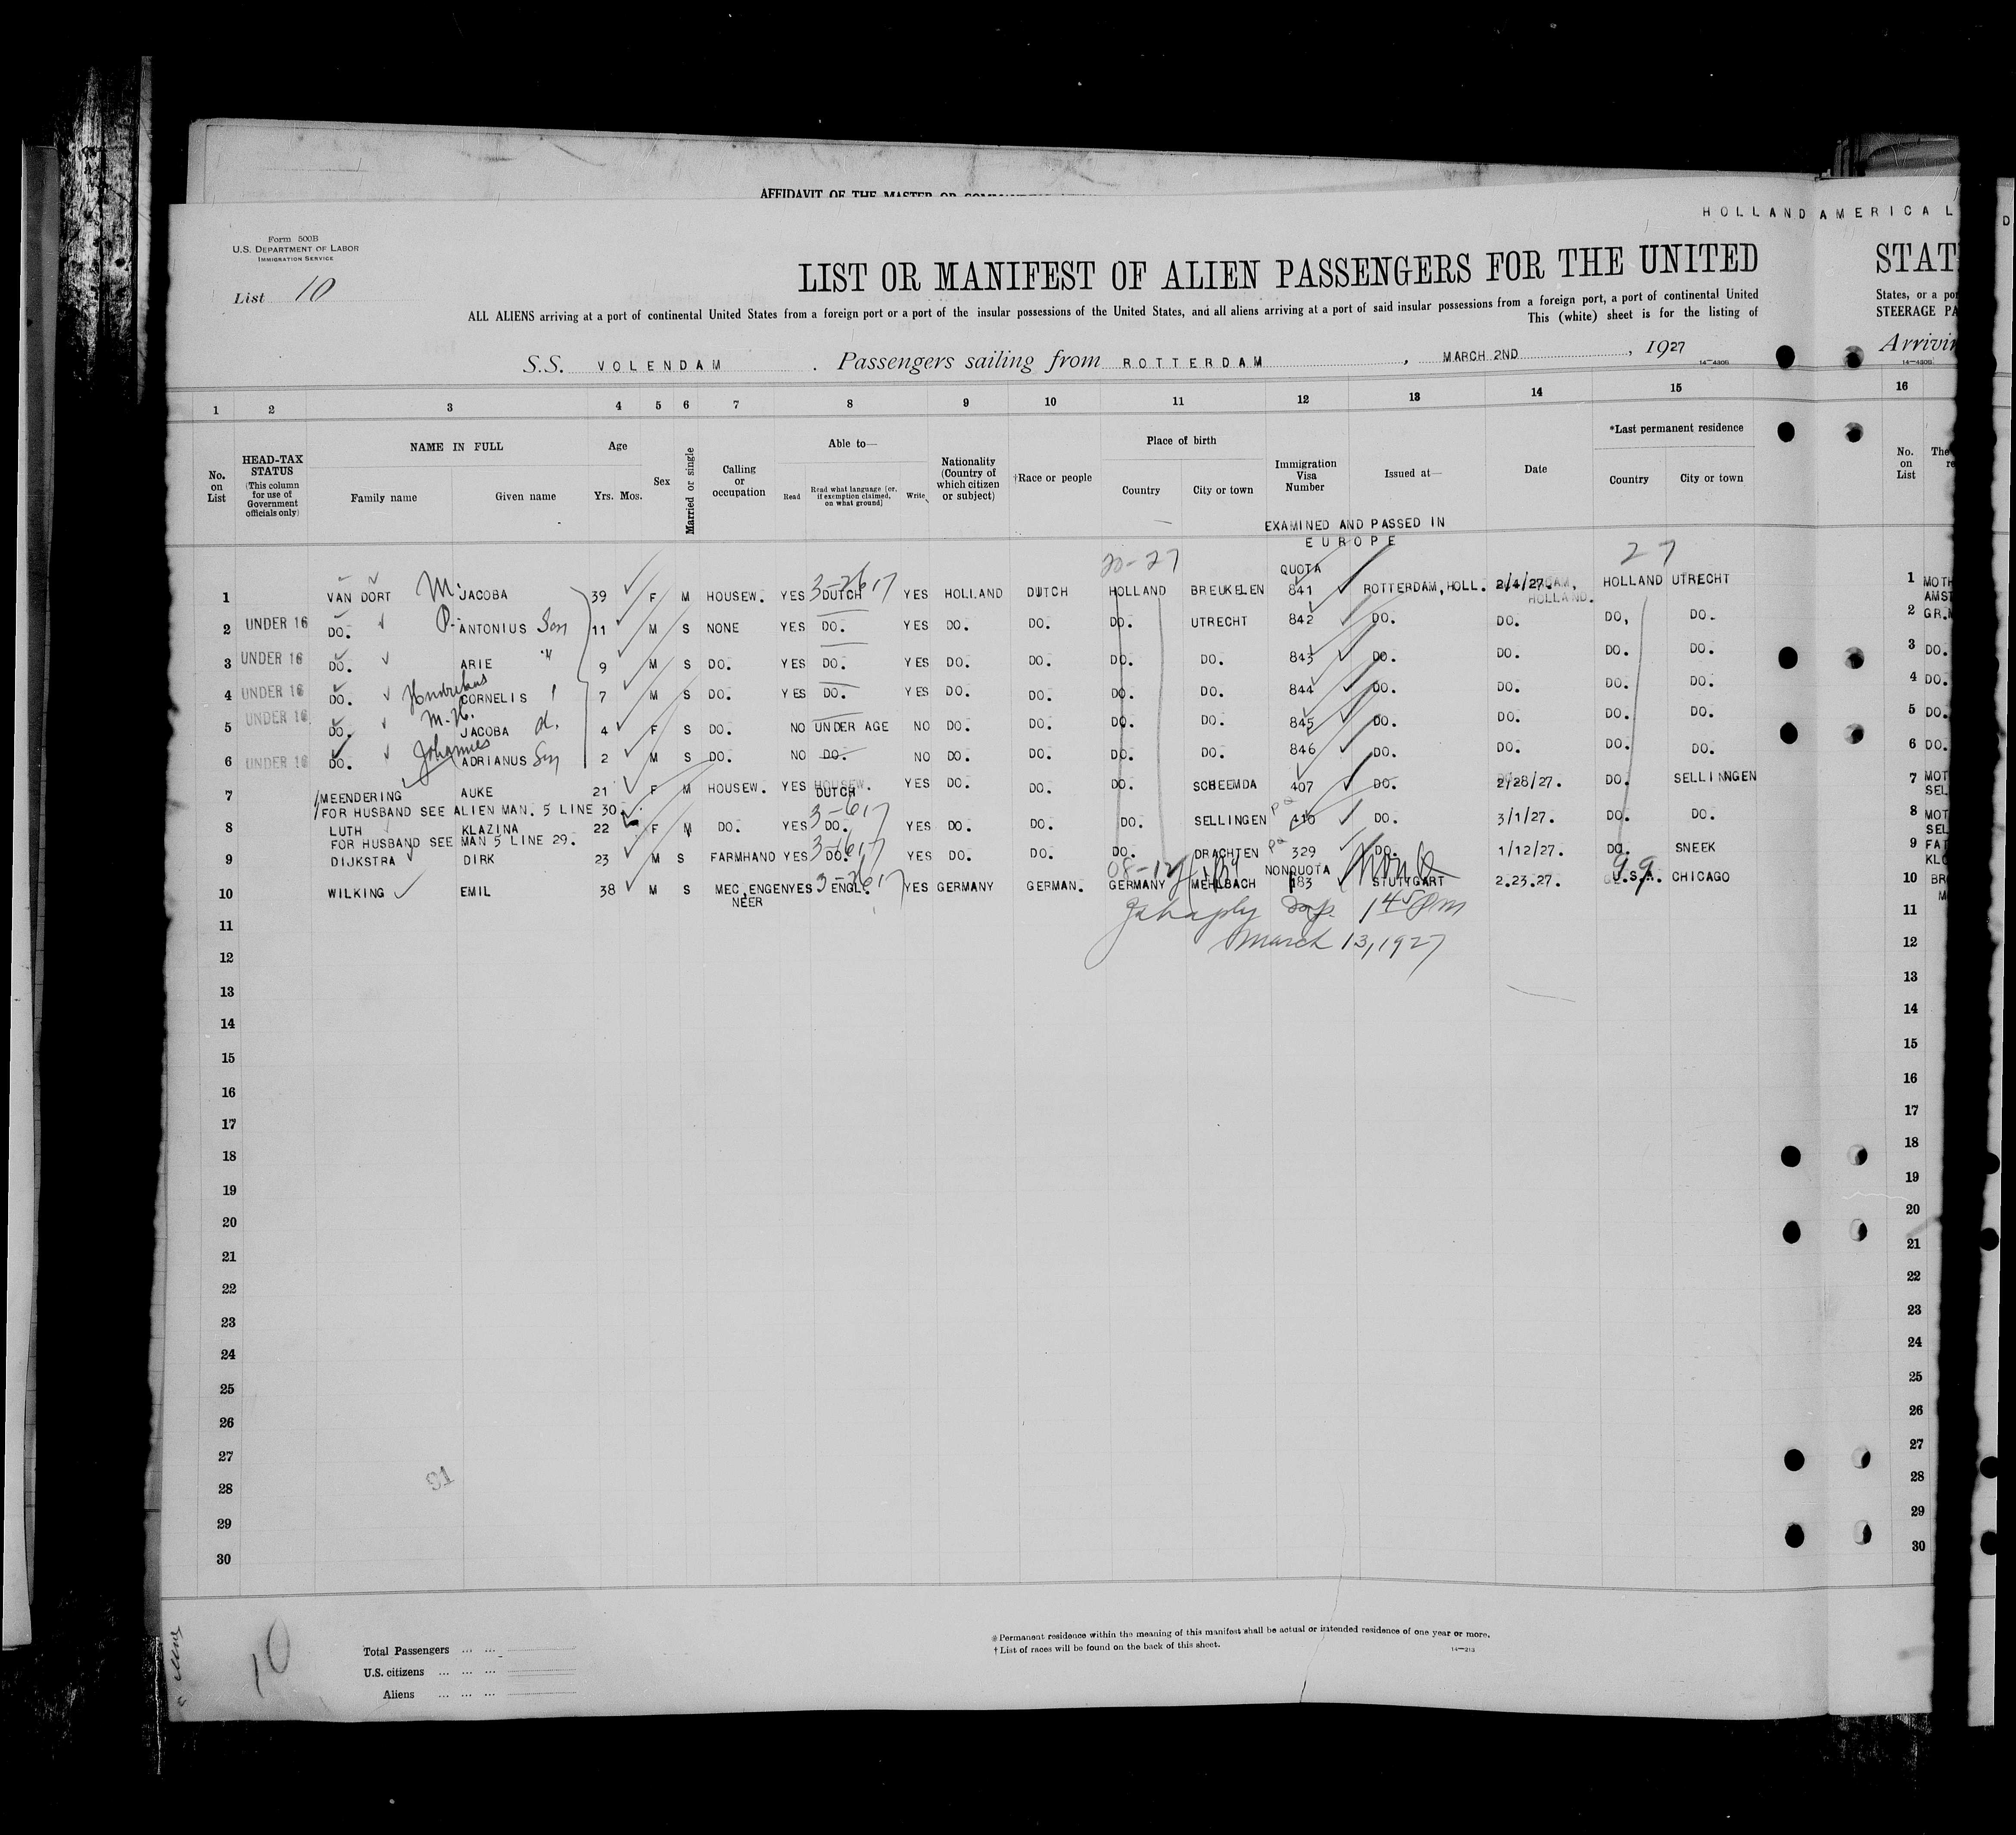 AFFIDAVIT OF THE MASTER OR
HOLLAND AMERICA L
Form 500B
U.S. DEPARTMENT OF LABOR
IMMIGRATION SERVICE
List 10
LIST OR MANIFEST OF ALIEN PASSENGERS FOR THE UNITED
STAT
ALL ALIENS arriving at a port of continental United States from a foreign port or a port of the insular possessions of the United States, and all aliens arriving at a port of said insular possessions from a foreign port, a port of continental United
States, or a po
This (white) sheet is for the listing of
STEERAGE PA
S.S. VOLENDAM. Passengers sailing from ROTTERDAM, MARCH 2ND, 1927
Arrivin
1 2 3 4 5 6 7 8 9 10 11 12 13 14 15 16
No. on List
HEAD-TAX STATUS (This column for use of Government officials only)
NAME IN FULL
Family name Given name
Age
Yrs. Mos.
Sex
Married or single
Calling or occupation
Able to—
Read Read what language [or, if exemption claimed, on what ground] Write
Nationality (Country of which citizen or subject)
†Race or people
Place of birth
Country City or town
Immigration Visa Number
Issued at—
Date
*Last permanent residence
Country City or town
No. on List
EXAMINED AND PASSED IN
EUROPE
20-27 27
QUOTA
1 VAN DORT M. JACOBA 39 F M HOUSEW. YES DUTCH 3-2617 YES HOLLAND DUTCH HOLLAND BREUKELEN 841 ROTTERDAM, HOLL. 2/4/27. HOLLAND UTRECHT 1 MOTH
HOLLAND. AMST
2 UNDER 16 DO. P. ANTONIUS Son 11 M S NONE YES DO. YES DO. DO. DO. UTRECHT 842 DO. DO. DO, DO. 2 GR.M
3 UNDER 16 DO. ARIE " 9 M S DO. YES DO. YES DO. DO. DO. DO. 843 DO. DO. DO. DO. 3 DO.
4 UNDER 16 DO. Hendrikus CORNELIS 7 M S DO. YES DO. YES DO. DO. DO. DO. 844 DO. DO. DO. DO. 4 DO.
5 UNDER 16 DO. M-H. JACOBA d. 4 F S DO. NO UNDER AGE NO DO. DO. DO. DO. 845 DO. DO. DO. DO. 5 DO.
6 UNDER 16 DO. Johannes ADRIANUS Son 2 M S DO. NO DO. NO DO. DO. DO. DO. 846 DO. DO. DO. DO. 6 DO.
7 MEENDERING AUKE 21 F M HOUSEW. YES DUTCH YES DO. DO. DO. SCHEEMDA 407 DO. 2/28/27. DO. SELLINNGEN 7 MOT
SEL
FOR HUSBAND SEE ALIEN MAN. 5 LINE 30.
8 LUTH KLAZINA 22 F M DO. YES DO. 3-617 YES DO. DO. DO. SELLINGEN 410 DO. 3/1/27. DO. DO. 8 MOT
SEL
FOR HUSBAND SEE MAN 5 LINE 29.
9 DIJKSTRA DIRK 23 M S FARMHAND YES DO. YES DO. DO. DO. DRACHTEN 329 DO. 1/12/27. DO. SNEEK 9 FAT
KLO
NONQUOTA
10 WILKING EMIL 38 M S MEC,ENGENYES ENGL. 3-2617 YES GERMANY GERMAN. GERMANY MEHLBACH 183 STUTTGART 2.23.27. U.S.A. CHICAGO 10 BR
NEER
March 13, 1927
11 11
12 12
13 13
14 14
15 15
16 16
17 17
18 18
19 19
20 20
21 21
22 22
23 23
24 24
25 25
26 26
27 27
28 28
29 29
30 30
10
Total Passengers ... ...
U.S. citizens ... ... ...
Aliens ... ... ...
* Permanent residence within the meaning of this manifest shall be actual or intended residence of one year or more.
† List of races will be found on the back of this sheet.
14—213